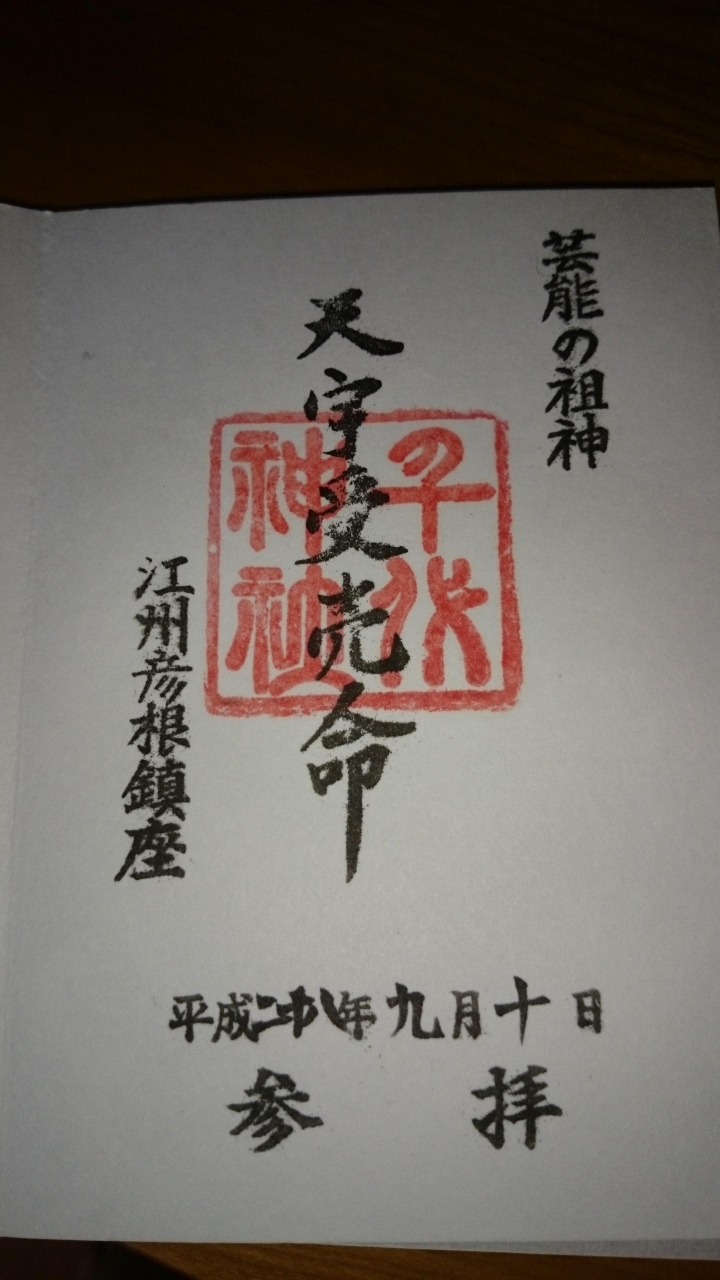 芸能の祖神
天宇受売命
千代
神社
江州彦根鎮座
平成二十八年九月十日
参拝